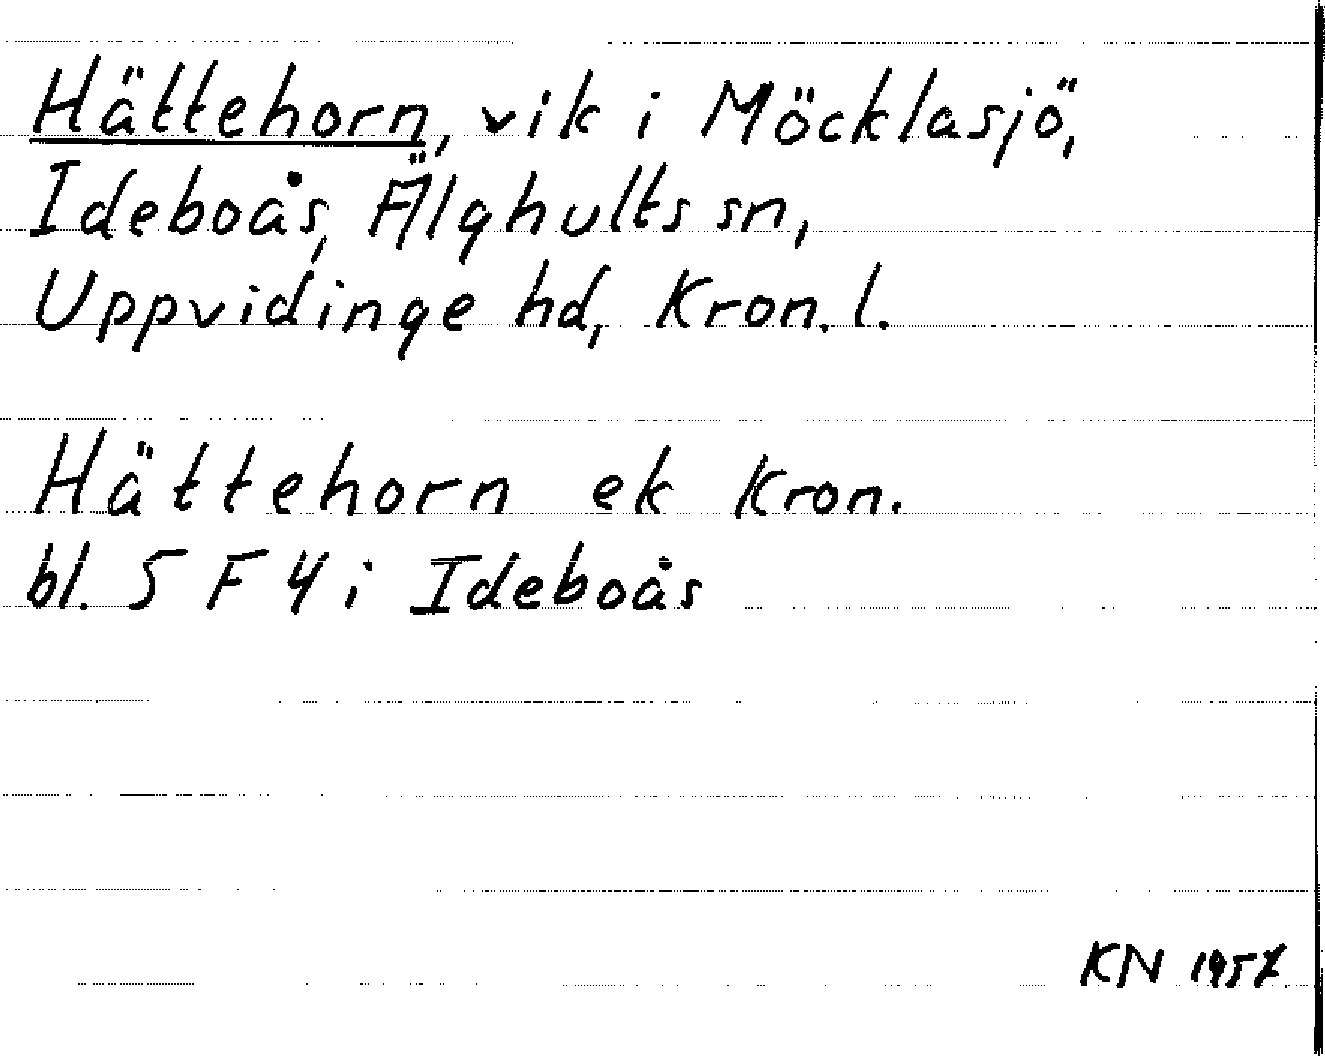 Hättehorn, vik i Möcklasjö,
Ideboås, Älghults sn,
Uppvidinge hd, Kron. l.
Hättehorn ek Kron.
bl. 5 F 4 i Ideboås
KN 1957